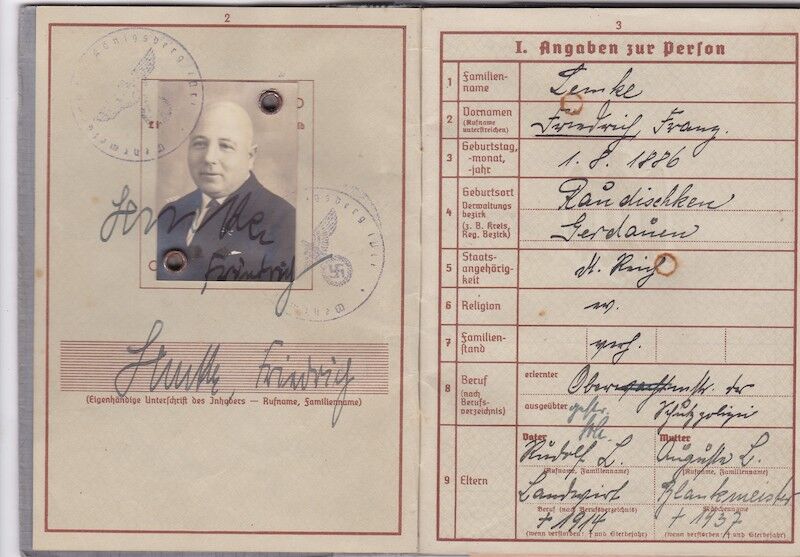 2
Königsberg
Lemke
Friedrich
Königsberg
Lemke Friedrich
(Eigenhändige Unterschrift des Inhabers — Rufname, Familienname)
3
I. Angaben zur Person
1 Familien-
name
Lemke
2 Vornamen
(Rufname
unterstreichen)
Friedrich Franz.
3 Geburtstag,
-monat,
-jahr
1. 8. 1886
4 Geburtsort
Verwaltungs
bezirk
(z. B. Kreis,
Reg. Bezirk)
Raudischken
Gerdauen
5 Staats-
angehörig-
keit
dt. Reich
6 Religion
ev.
7 Familien-
stand
verh.
8 Beruf
(nach
Berufs-
verzeichnis)
erlernter
der
ausgeübter
Schutzpolizei
9 Eltern
Vater
Mutter
Rudolf L.
Auguste L.
(Rufname, Familienname)
(Rufname, Familienname)
Landwirt
Blankmeister
Beruf (nach Berufsverzeichnis)
Mädchenname
† 1914
† 1937
(wenn verstorben: † und Sterbejahr)
(wenn verstorben: † und Sterbejahr)